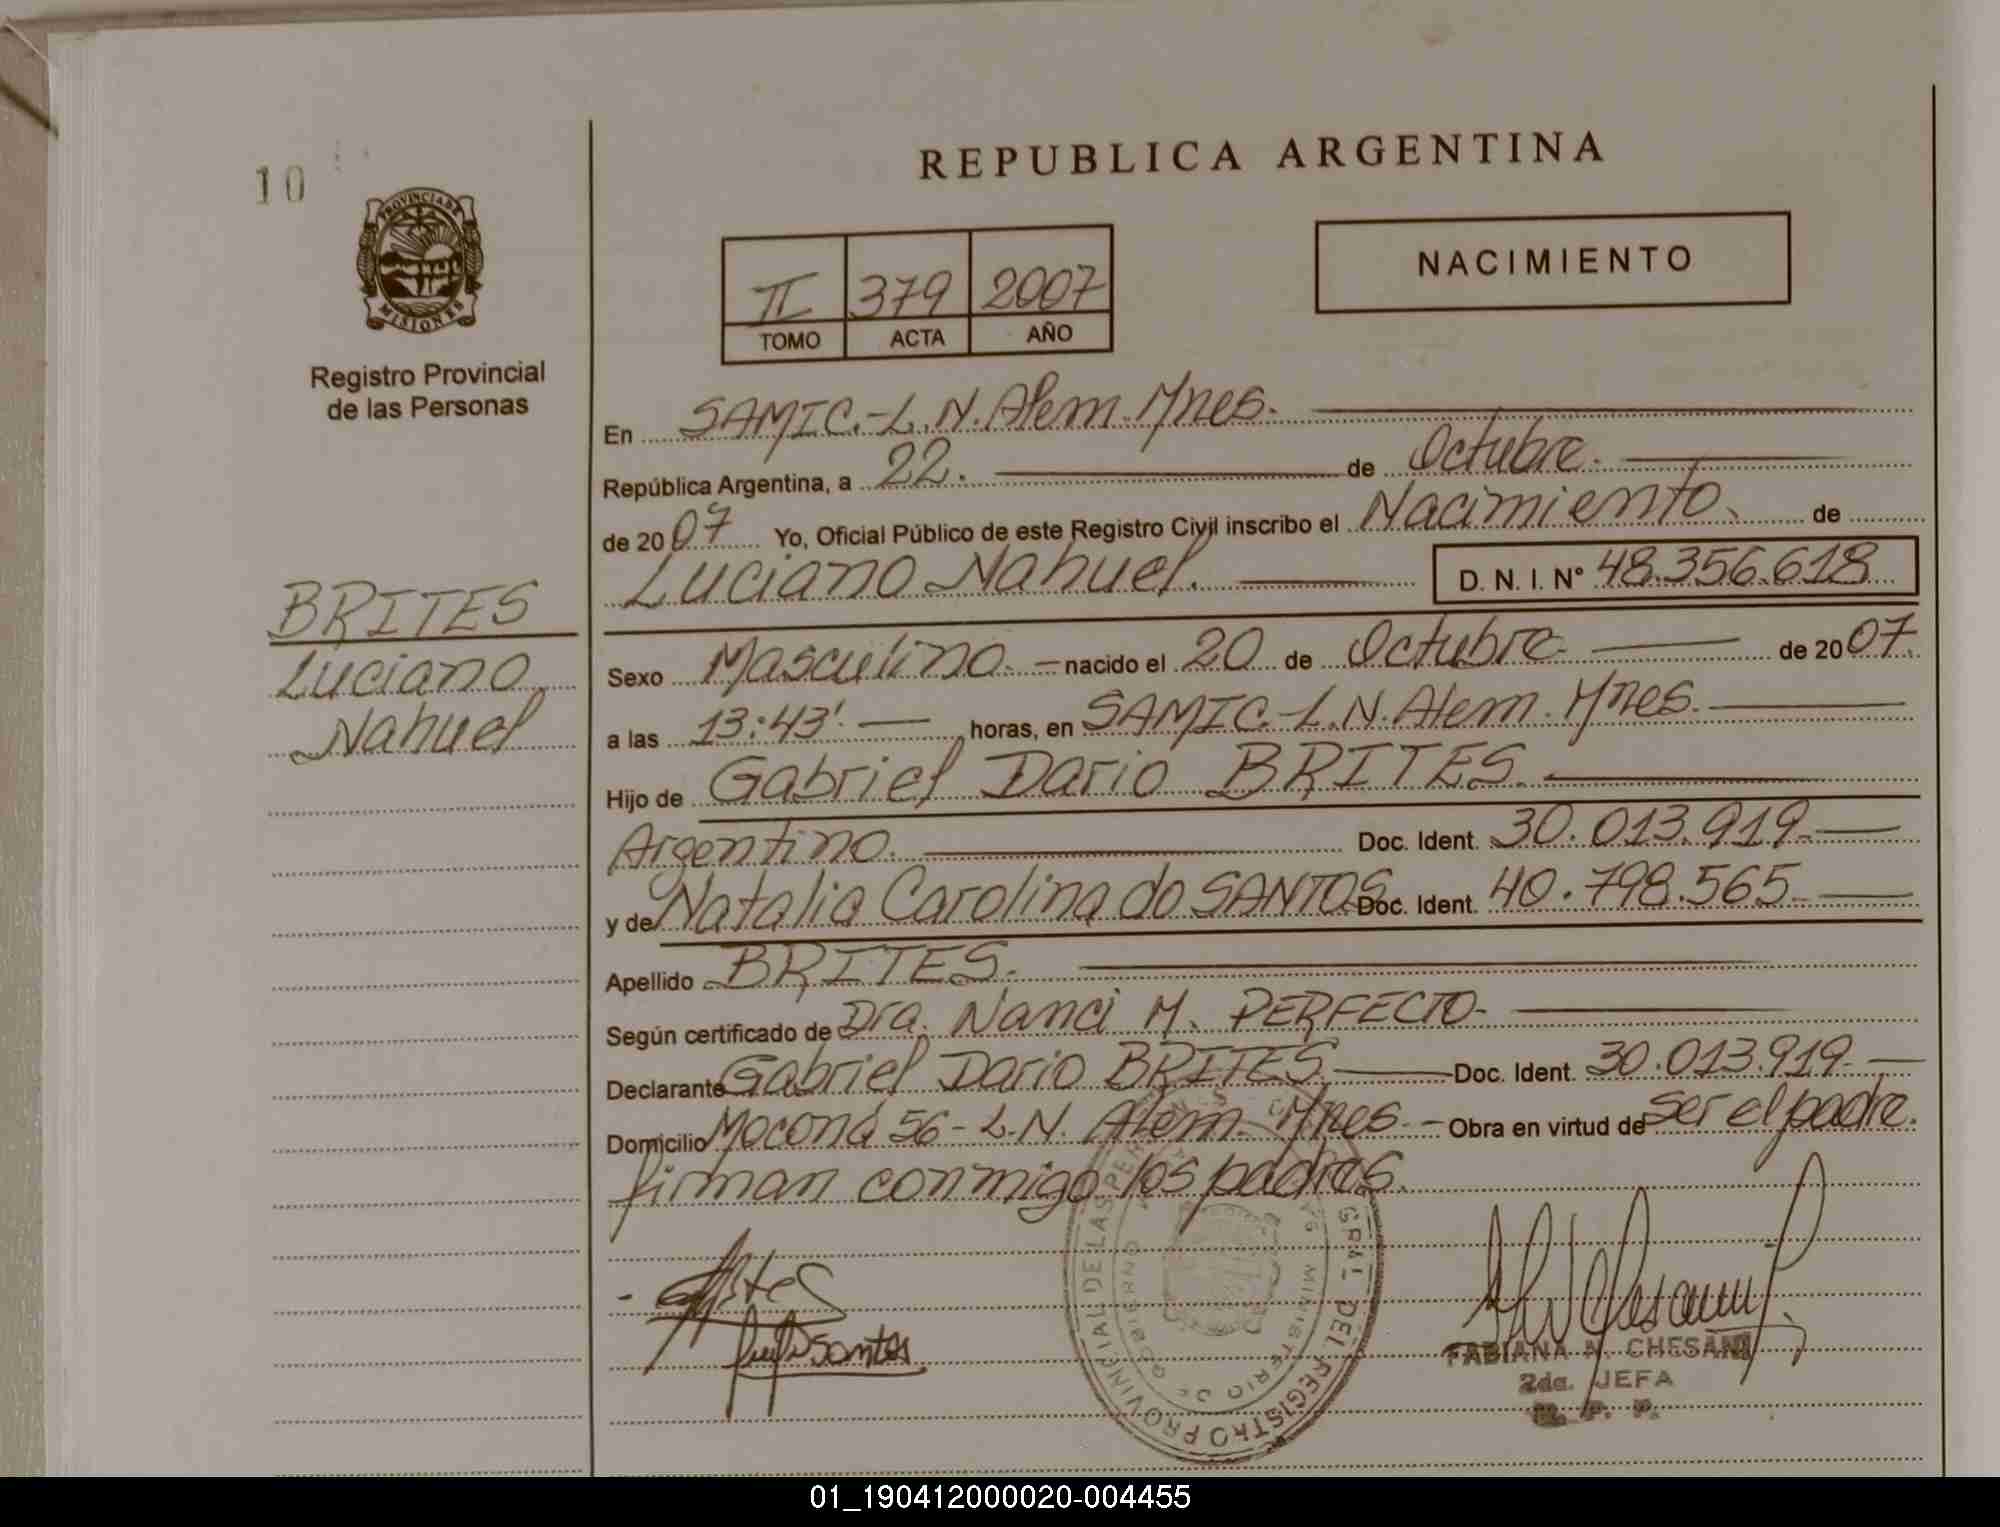 10
PROVINCIA DE
MISIONES
Registro Provincial
de las Personas
BRITES
Luciano
Nahuel
REPUBLICA ARGENTINA
II 379 2007
TOMO ACTA AÑO
NACIMIENTO
En SAMIC.-L.N.Alem.Mnes.
República Argentina, a 22. de Octubre.
de 2007 Yo, Oficial Público de este Registro Civil inscribo el Nacimiento. de
Luciano Nahuel. D. N. I. Nº 48.356.618
Sexo Masculino. nacido el 20 de Octubre de 2007.
a las 13:43' horas, en SAMIC.-L.N.Alem.Mnes.
Hijo de Gabriel Dario BRITES.
Argentino. Doc. Ident. 30.013.919
y de Natalia Carolina do SANTOS Doc. Ident. 40.798.565
Apellido BRITES.
Según certificado de Dra. Nanci M. PERFECTO-
Declarante Gabriel Dario BRITES Doc. Ident. 30.013.919
Domicilio Moconá 56-L.N. Alem. Mnes.- Obra en virtud de ser el padre.
firman conmigo los padres.
GRAL DEL REGISTRO PROVINCIAL DE LAS PER
MINISTERIO DE GOBIERNO
FABIANA N. CHESANI
2da. JEFA
R. P. P.
01_190412000020-004455